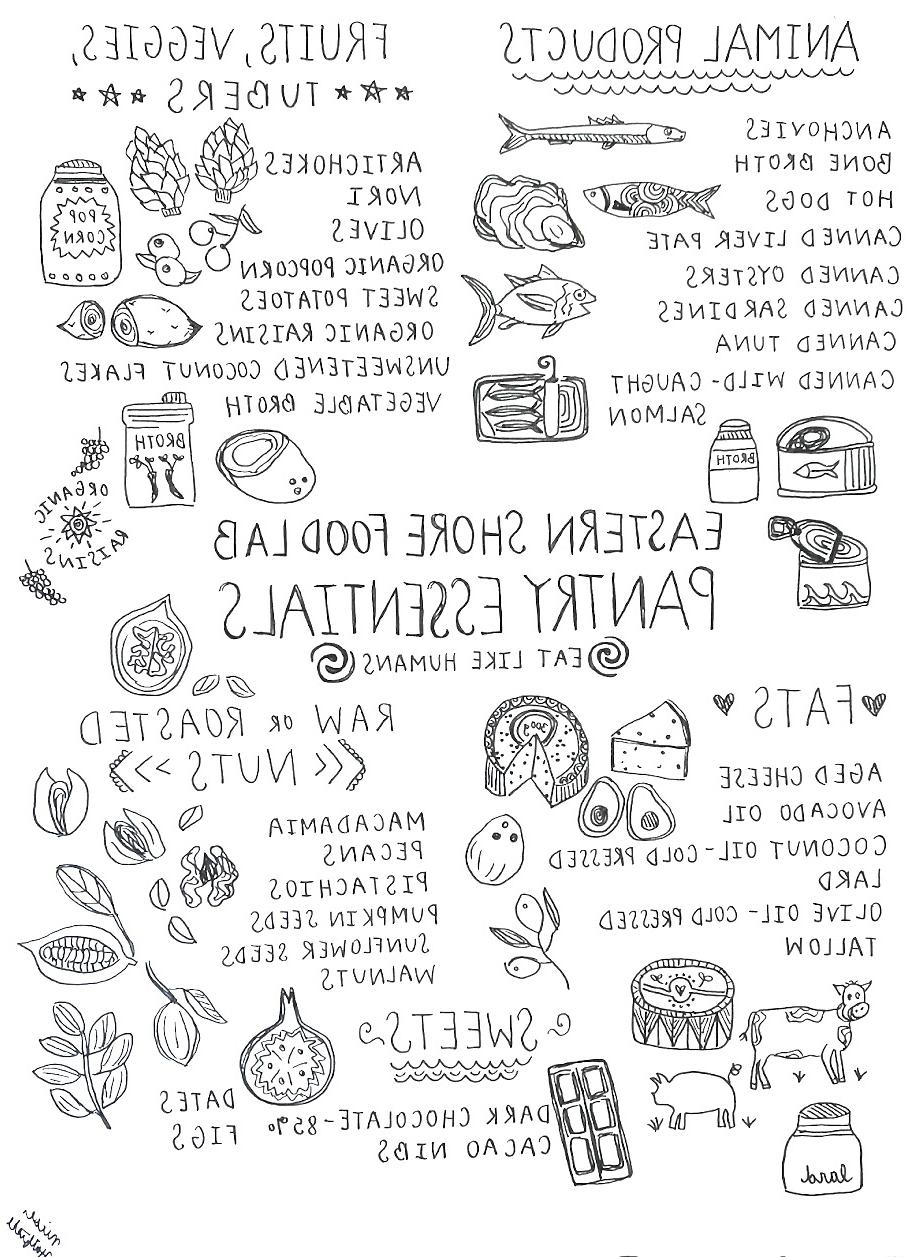 ANIMAL PRODUCTS
ANCHOVIES
BONE BROTH
HOT DOGS
CANNED LIVER PATE
CANNED OYSTERS
CANNED SARDINES
CANNED TUNA
CANNED WILD-CAUGHT
SALMON
BROTH
FRUITS, VEGGIES,
TUBERS
ARTICHOKES
NORI
OLIVES
ORGANIC POPCORN
SWEET POTATOES
ORGANIC RAISINS
UNSWEETENED COCONUT FLAKES
VEGETABLE BROTH
POP
CORN
BROTH
ORGANIC
RAISINS
EASTERN SHORE FOOD LAB
PANTRY ESSENTIALS
EAT LIKE HUMANS
FATS
AGED CHEESE
AVOCADO OIL
COCONUT OIL - COLD PRESSED
LARD
OLIVE OIL - COLD PRESSED
TALLOW
lard
RAW OR ROASTED
NUTS
MACADAMIA
PECANS
PISTACHIOS
PUMPKIN SEEDS
SUNFLOWER SEEDS
WALNUTS
SWEETS
DARK CHOCOLATE - 85%
CACAO NIBS
DATES
FIGS